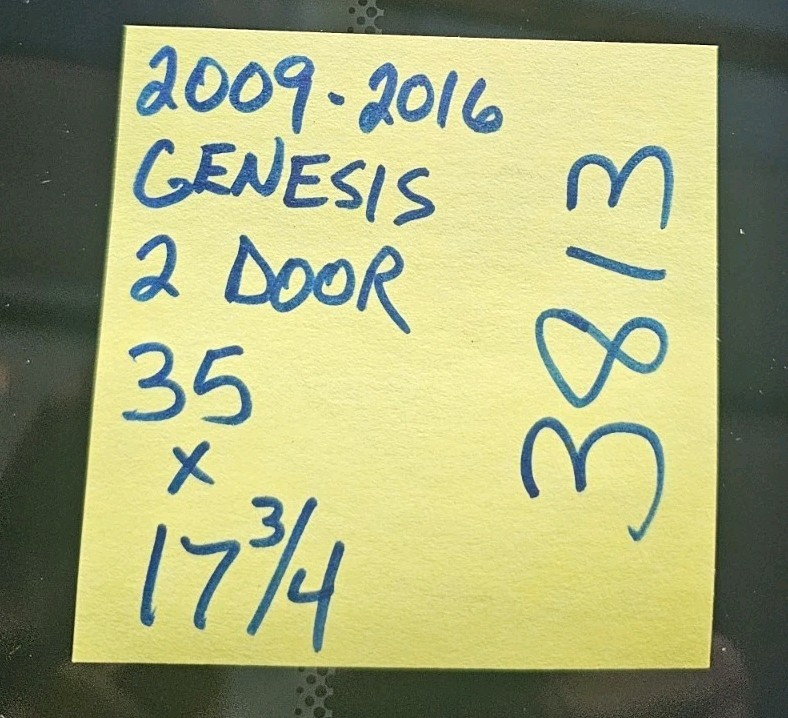 2009-2016
GENESIS
2 DOOR
35
x
17 3/4
3813